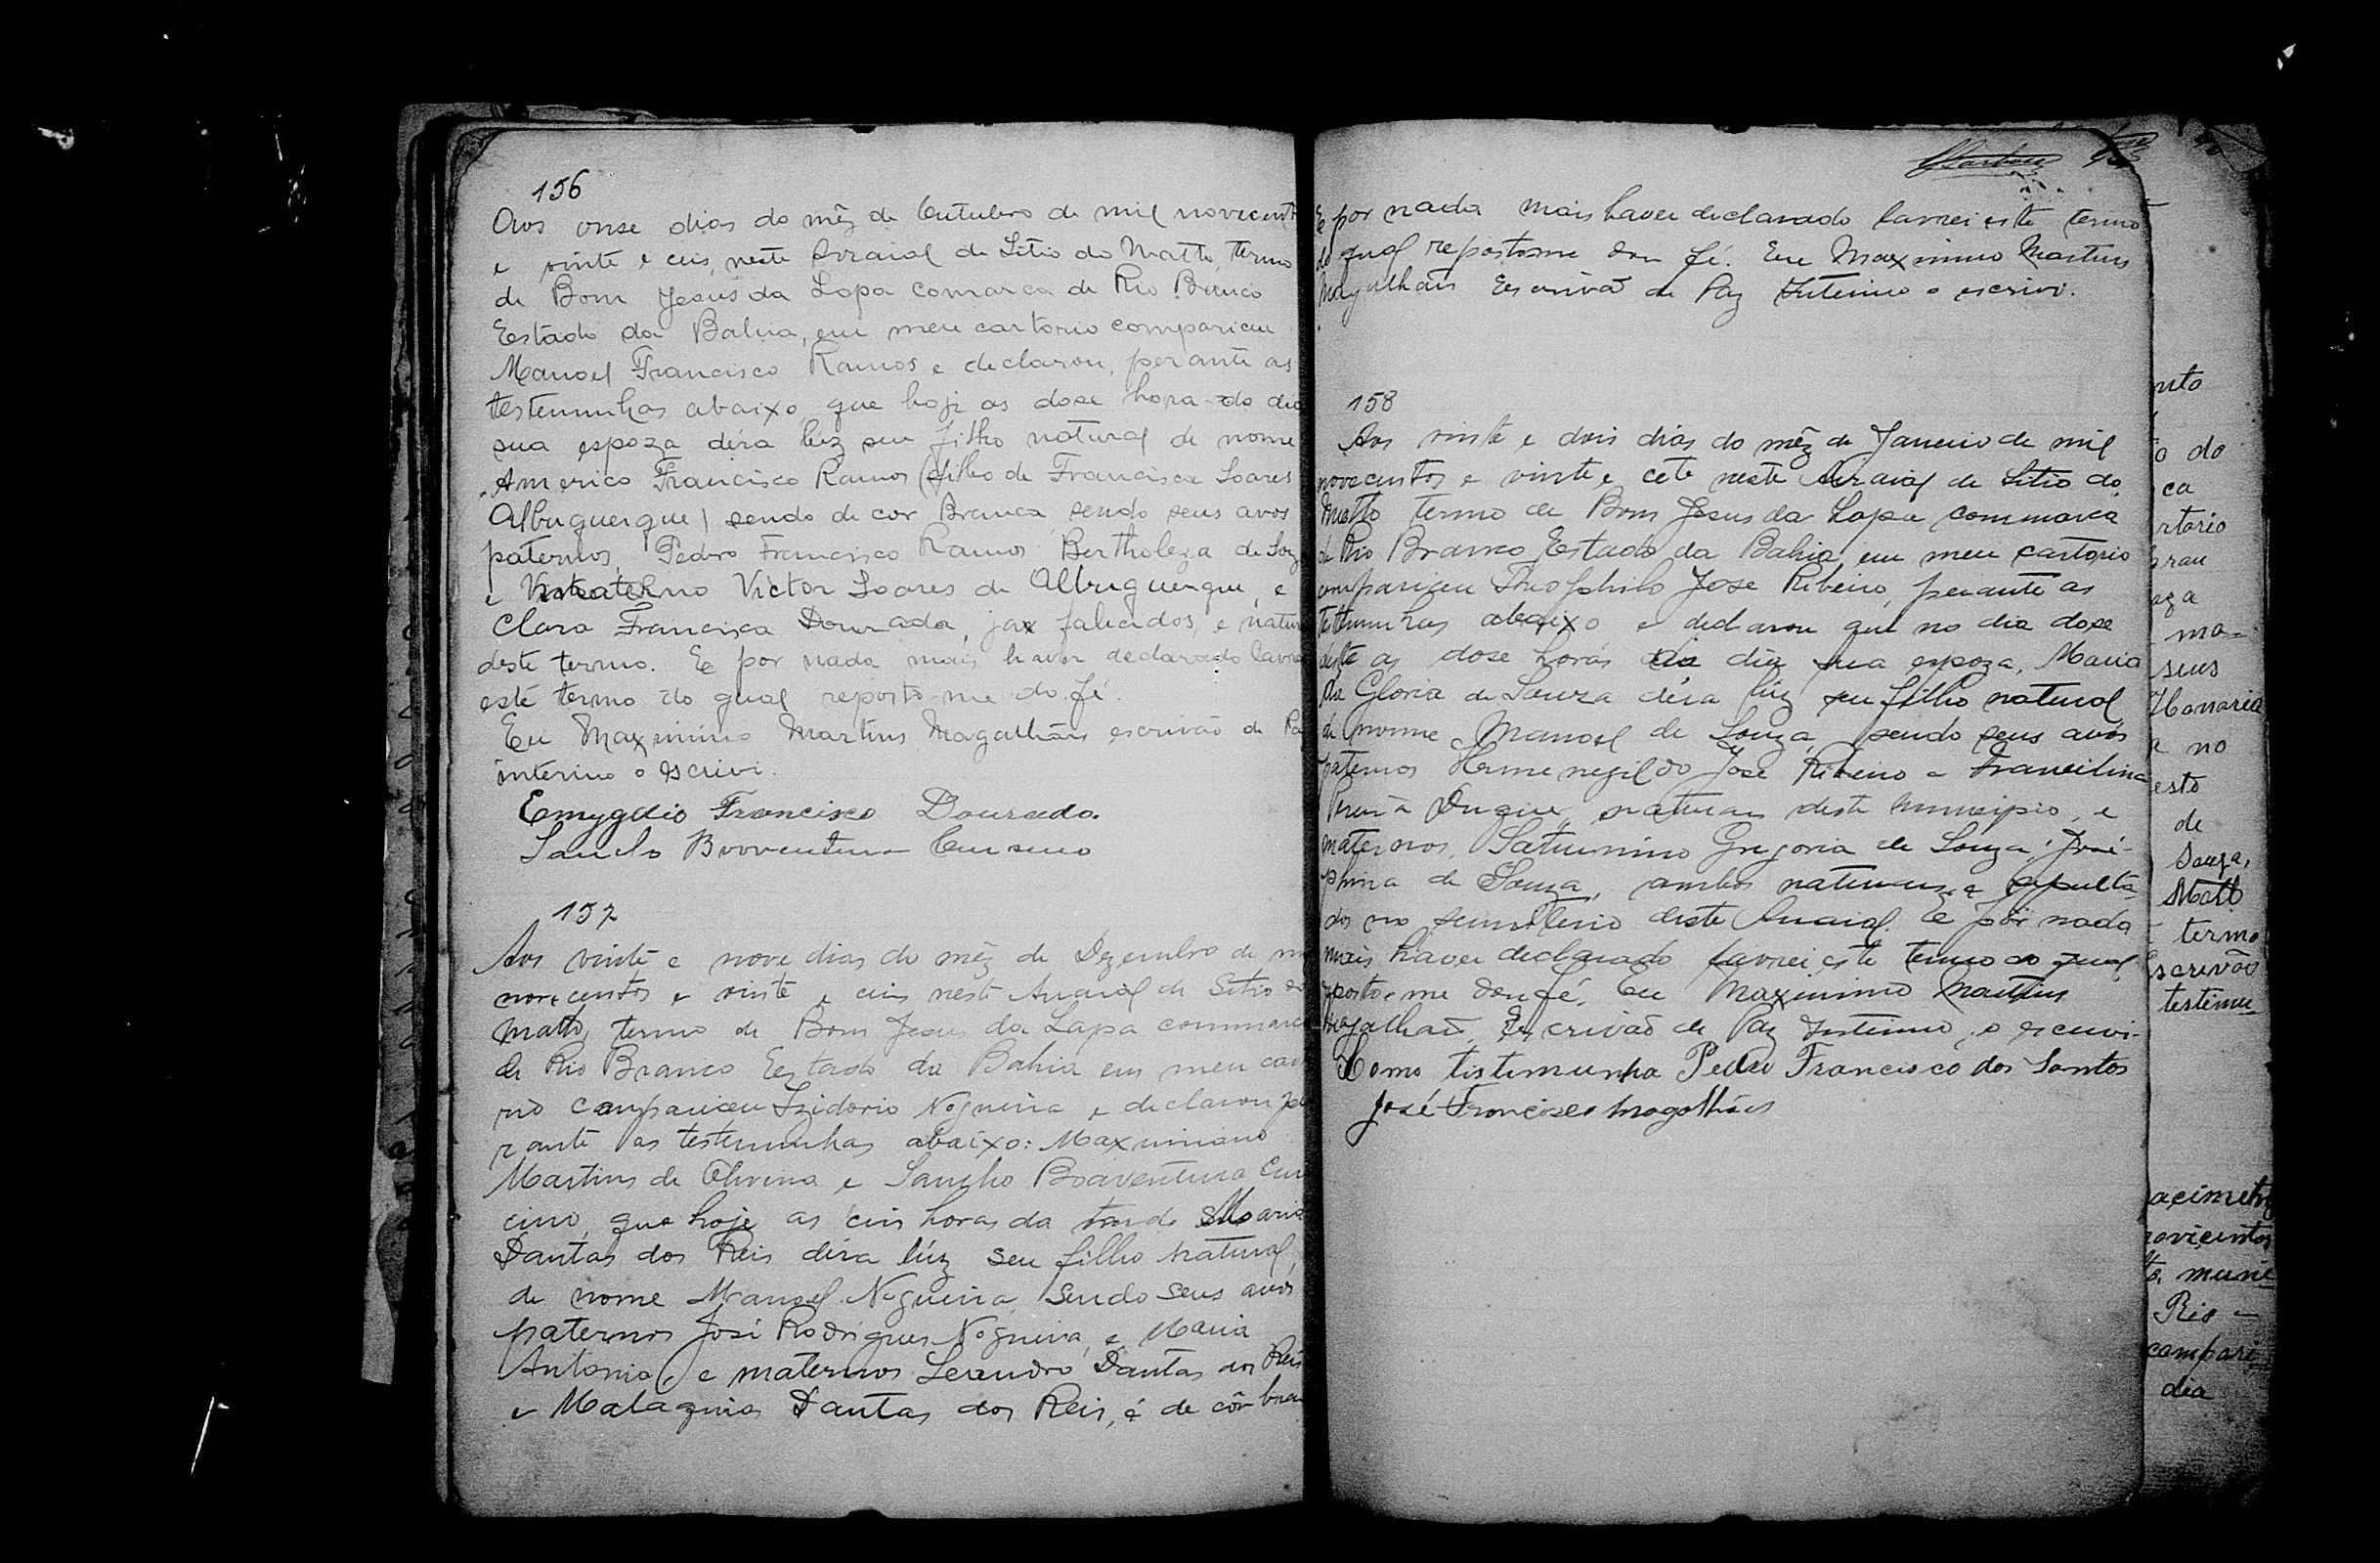 156
Aos onse dias do mêz de Outubro de mil novecent
e vinte e ceis, neste Arraial de Sitio do Matto, termo
de Bom Jesus da Lapa comarca de Rio Branco
Estado da Bahia, em meu cartorio compariceu
Manoel Francisco Ramos e declarou, perante as
testemunhas abaixo que hoje as dose hora do dia
sua espoza déra lúz seu filho natural de nome
Americo Francisco Ramos (filho de Francisca Soares
Albuquerque) sendo de cor Branca sendo seus avos
paternos, Pedro Francisco Ramos Bertholeza de Soz
e materno Victor Soares de Albuquerque, e
Clara Francisca Dourada, jax falicidos, e natur
deste termo. E por nada mais haver declarado lavrei
este termo do qual reporto-me do fé.
Eu Maximino Martins Magalhãis escrivão de Paz
interino o escrivi.
Emygdio Francisco Dourado.
Sancho Boventura Cursino
157
Aos vinte e nove dias do mêz de Dezembro de m
novecentos e vinte e ceis neste Arraial de Sitio do
Matto, termo de Bom Jesus da Lapa commarca
de Rio Branco Estado da Bahia em meu car
rio compariceu Izidorio Nogueira e declarou pe
rante as testemunhas abaixo: Maximiano
Martins de Oliveira e Sancho Boaventura Cur
cino, que hoje as ceis horas da tarde Maria
Dantas dos Reis déra lúz seu filho natural,
de nome Manoel Nogueira, sendo seus avós
paternos José Rodrigues Nogueira, e Maria
Antonia, e maternos Leandro Dantas dos Reis
e Malaquias Dantas dos Reis, é de côr bran
E por nada mais haver declarado lavrei este termo
do qual repostome dou fé. Eu Maximino Martins
Magalhãis Escrivão de Paz Interino o escrivi.
158
Aos vinte e dois dias do mêz de Janeiro de mil
novecentos e vinte e cete neste Arraial de Sitio do
Matto termo de Bom Jesus da Lapa commarca
de Rio Branco Estado da Bahia em meu cartorio
compariceu Theophilo José Ribeiro, perante as
testemunhas abaixo e declarou que no dia dose
deste as dose horas do dia sua espoza, Maria
da Gloria de Souza déra lúz seu filho natural
de nome Manoel de Souza, sendo seus avós
paternos Hermenegildo José Ribeiro e Francilina
Duque, naturais deste Municipio, e
maternos, Saturnino Gregorio de Souza, José-
phina de Souza, ambos naturais e sepulta-
dos no semiterio deste Arraial. E por nada
mais haver declarado lavrei este termo do qual
reposto-me dou fé. Eu Maximino Martins
Magalhãis, Escrivão de Paz Interino, o escrivi.
Como tistimunha Pedro Francisco dos Santos
José Francisco Magalhãis
nto
o do
ca
rtorio
bran
oza
mo=
seus
Honoria
a no
esto
de
Souza,
Matto
termo
Escrivão
testemu
acimeto
novicintos
to, munic
Rio -
compari
dia